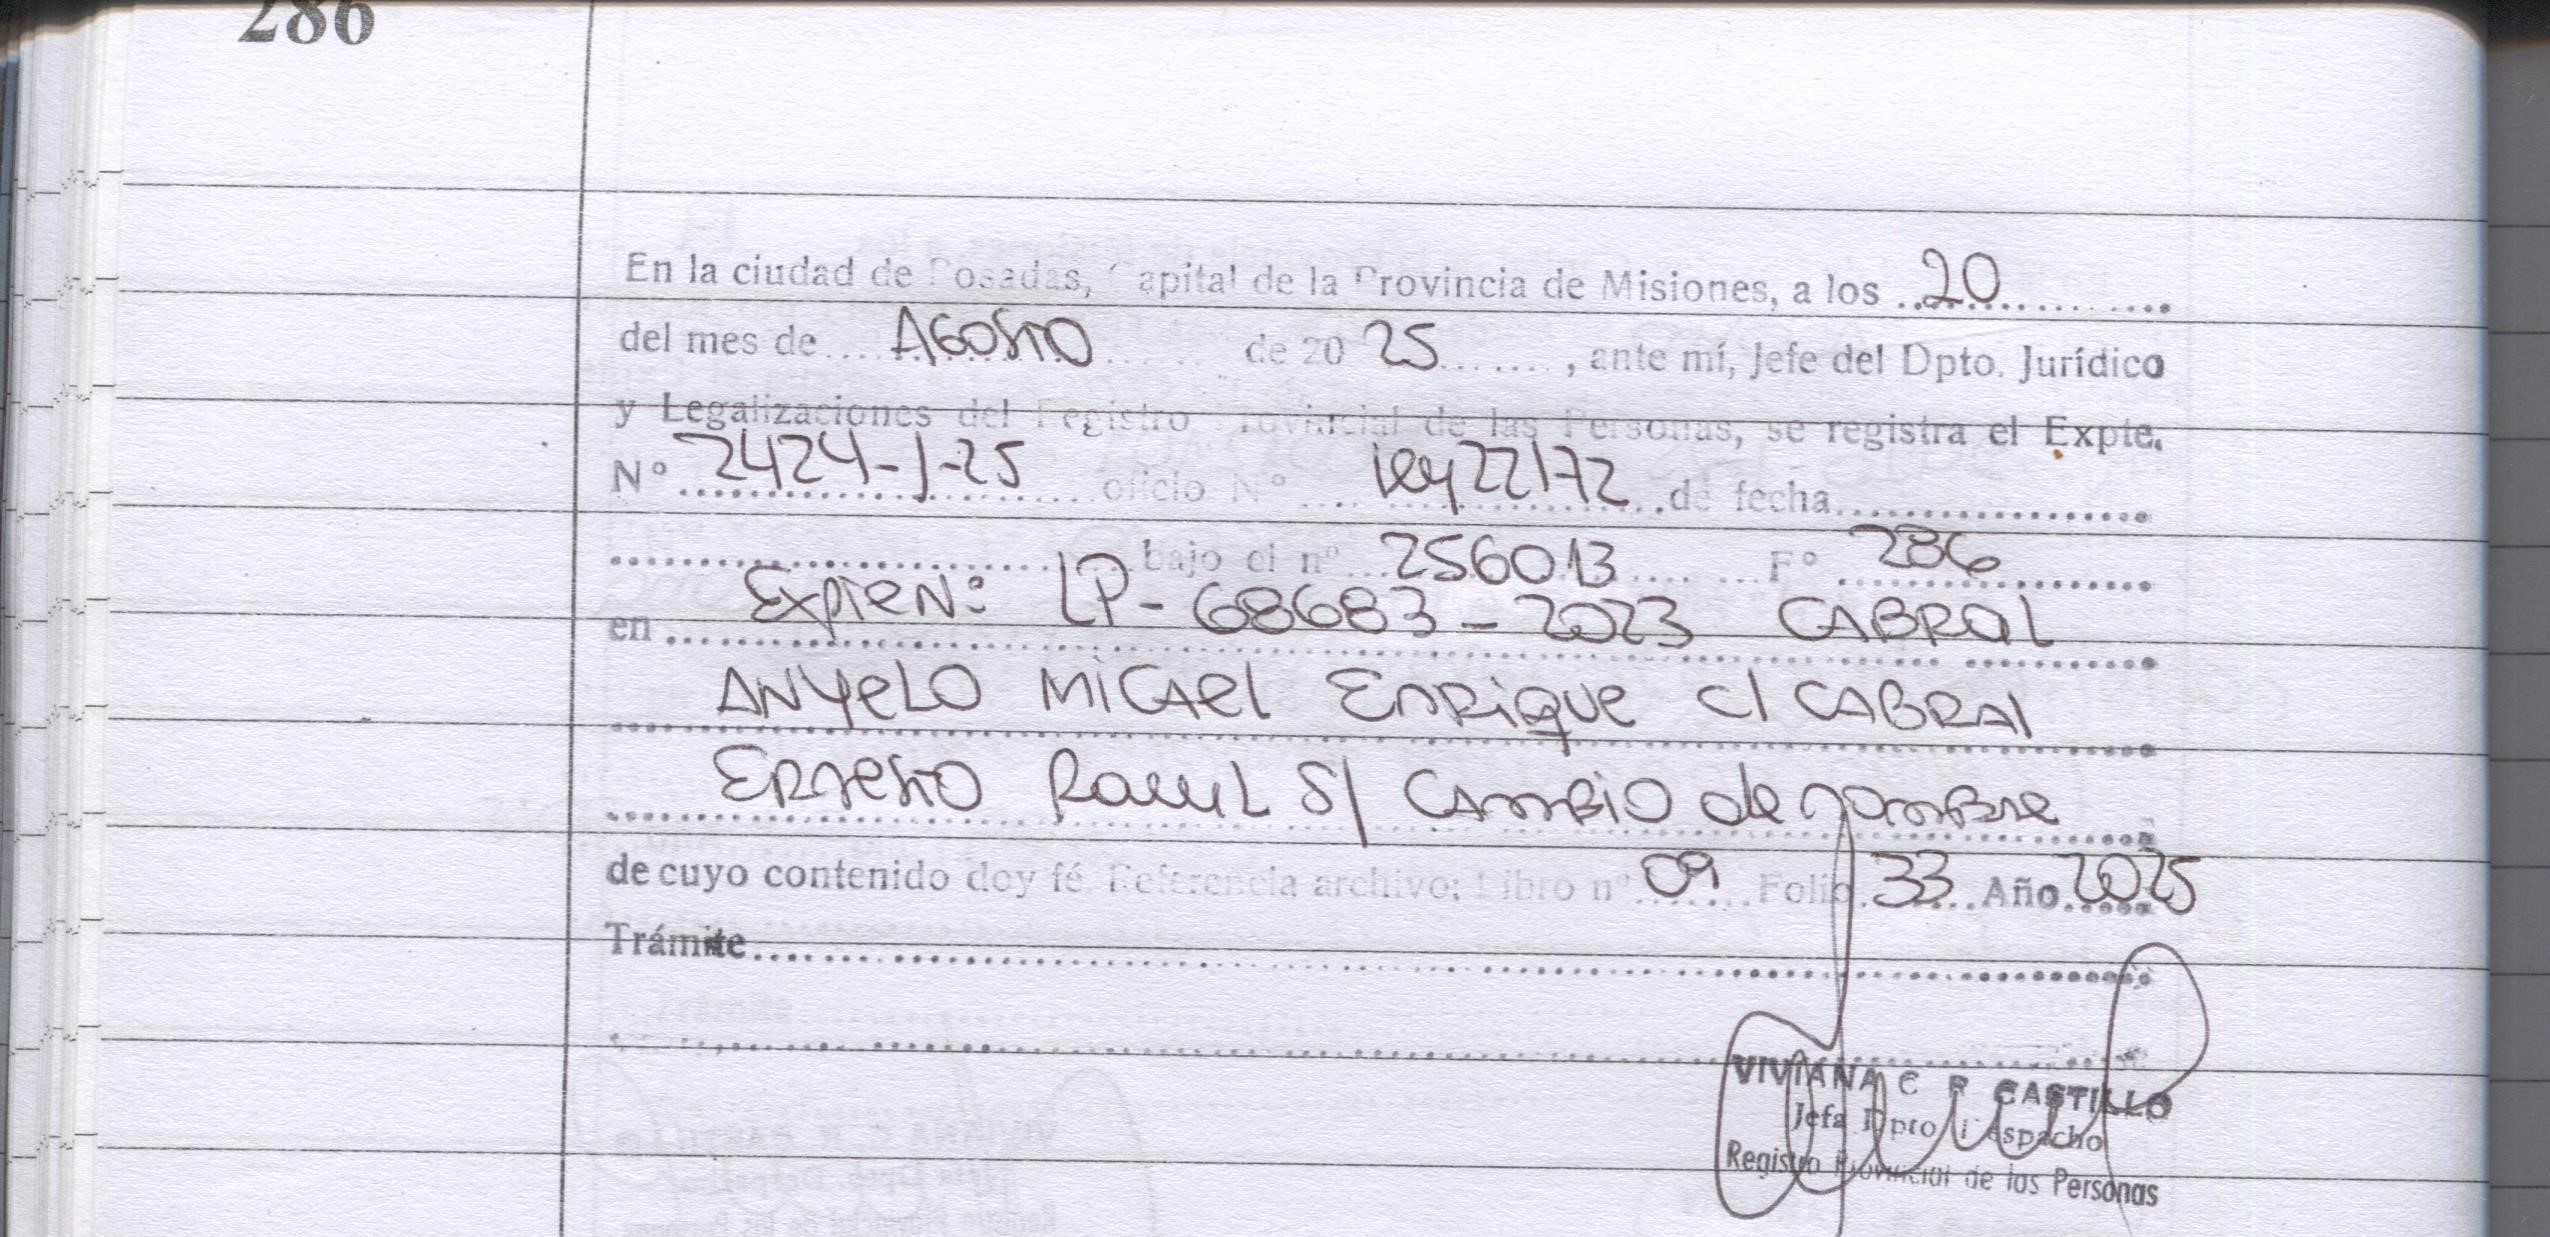 286
En la ciudad de Posadas, Capital de la Provincia de Misiones, a los 20
del mes de AGOSTO de 20 25 , ante mí, Jefe del Dpto. Jurídico
y Legalizaciones del Registro Provincial de las Personas, se registra el Expte.
N° 2424-J-25 oficio N° ley 22172 de fecha
bajo el n° 256013 F° 286
en Expten: LP-68683-2023 CABRAL
ANYELO MICAEL ENRIQUE C/ CABRAL
ERNESTO Rauul S/ CAMBIO de nombre
de cuyo contenido doy fé. Referencia archivo: Libro n° 09 Folio 33 Año 2025
Trámite
VIVIANA C R CASTILLO
Jefa Dpto Despacho
Registro Provincial de las Personas